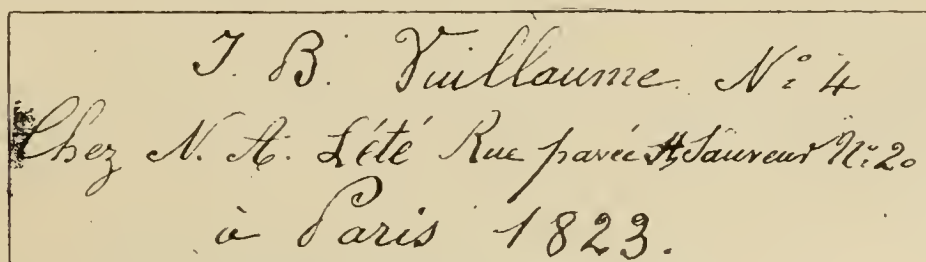 J. B. Vuillaume N° 4
Chez N. A. Lété Rue pavée St Sauveur N° 20
à Paris 1823.